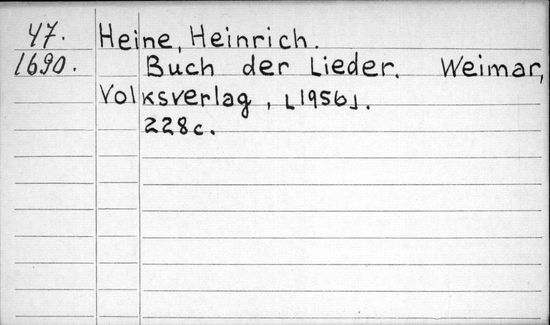 47. Heine, Heinrich.
1690. Buch der Lieder. Weimar,
Volksverlag, [1956].
228c.